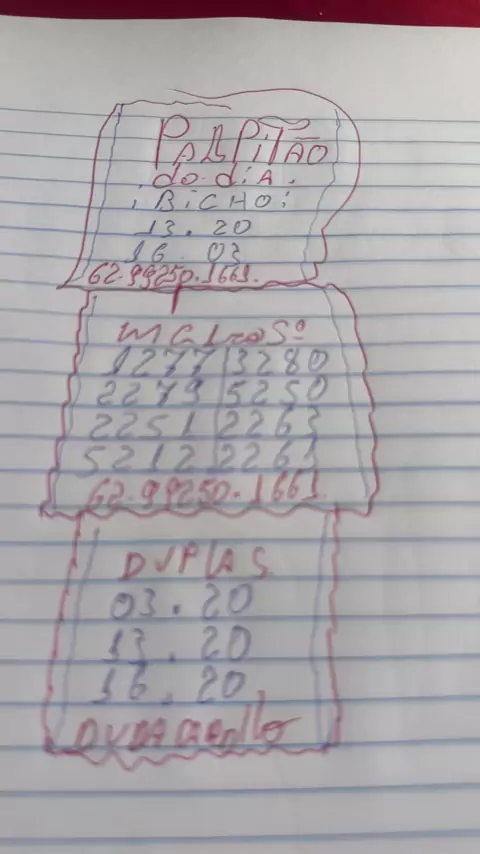 PALPITÃO
do dia
BICHO:
13.20
16.03
62.99250.1661.
1277 3280
2279 5250
2251 2263
5212 2261
62.99250.1661
DUPLAS
03.20
13.20
16.20